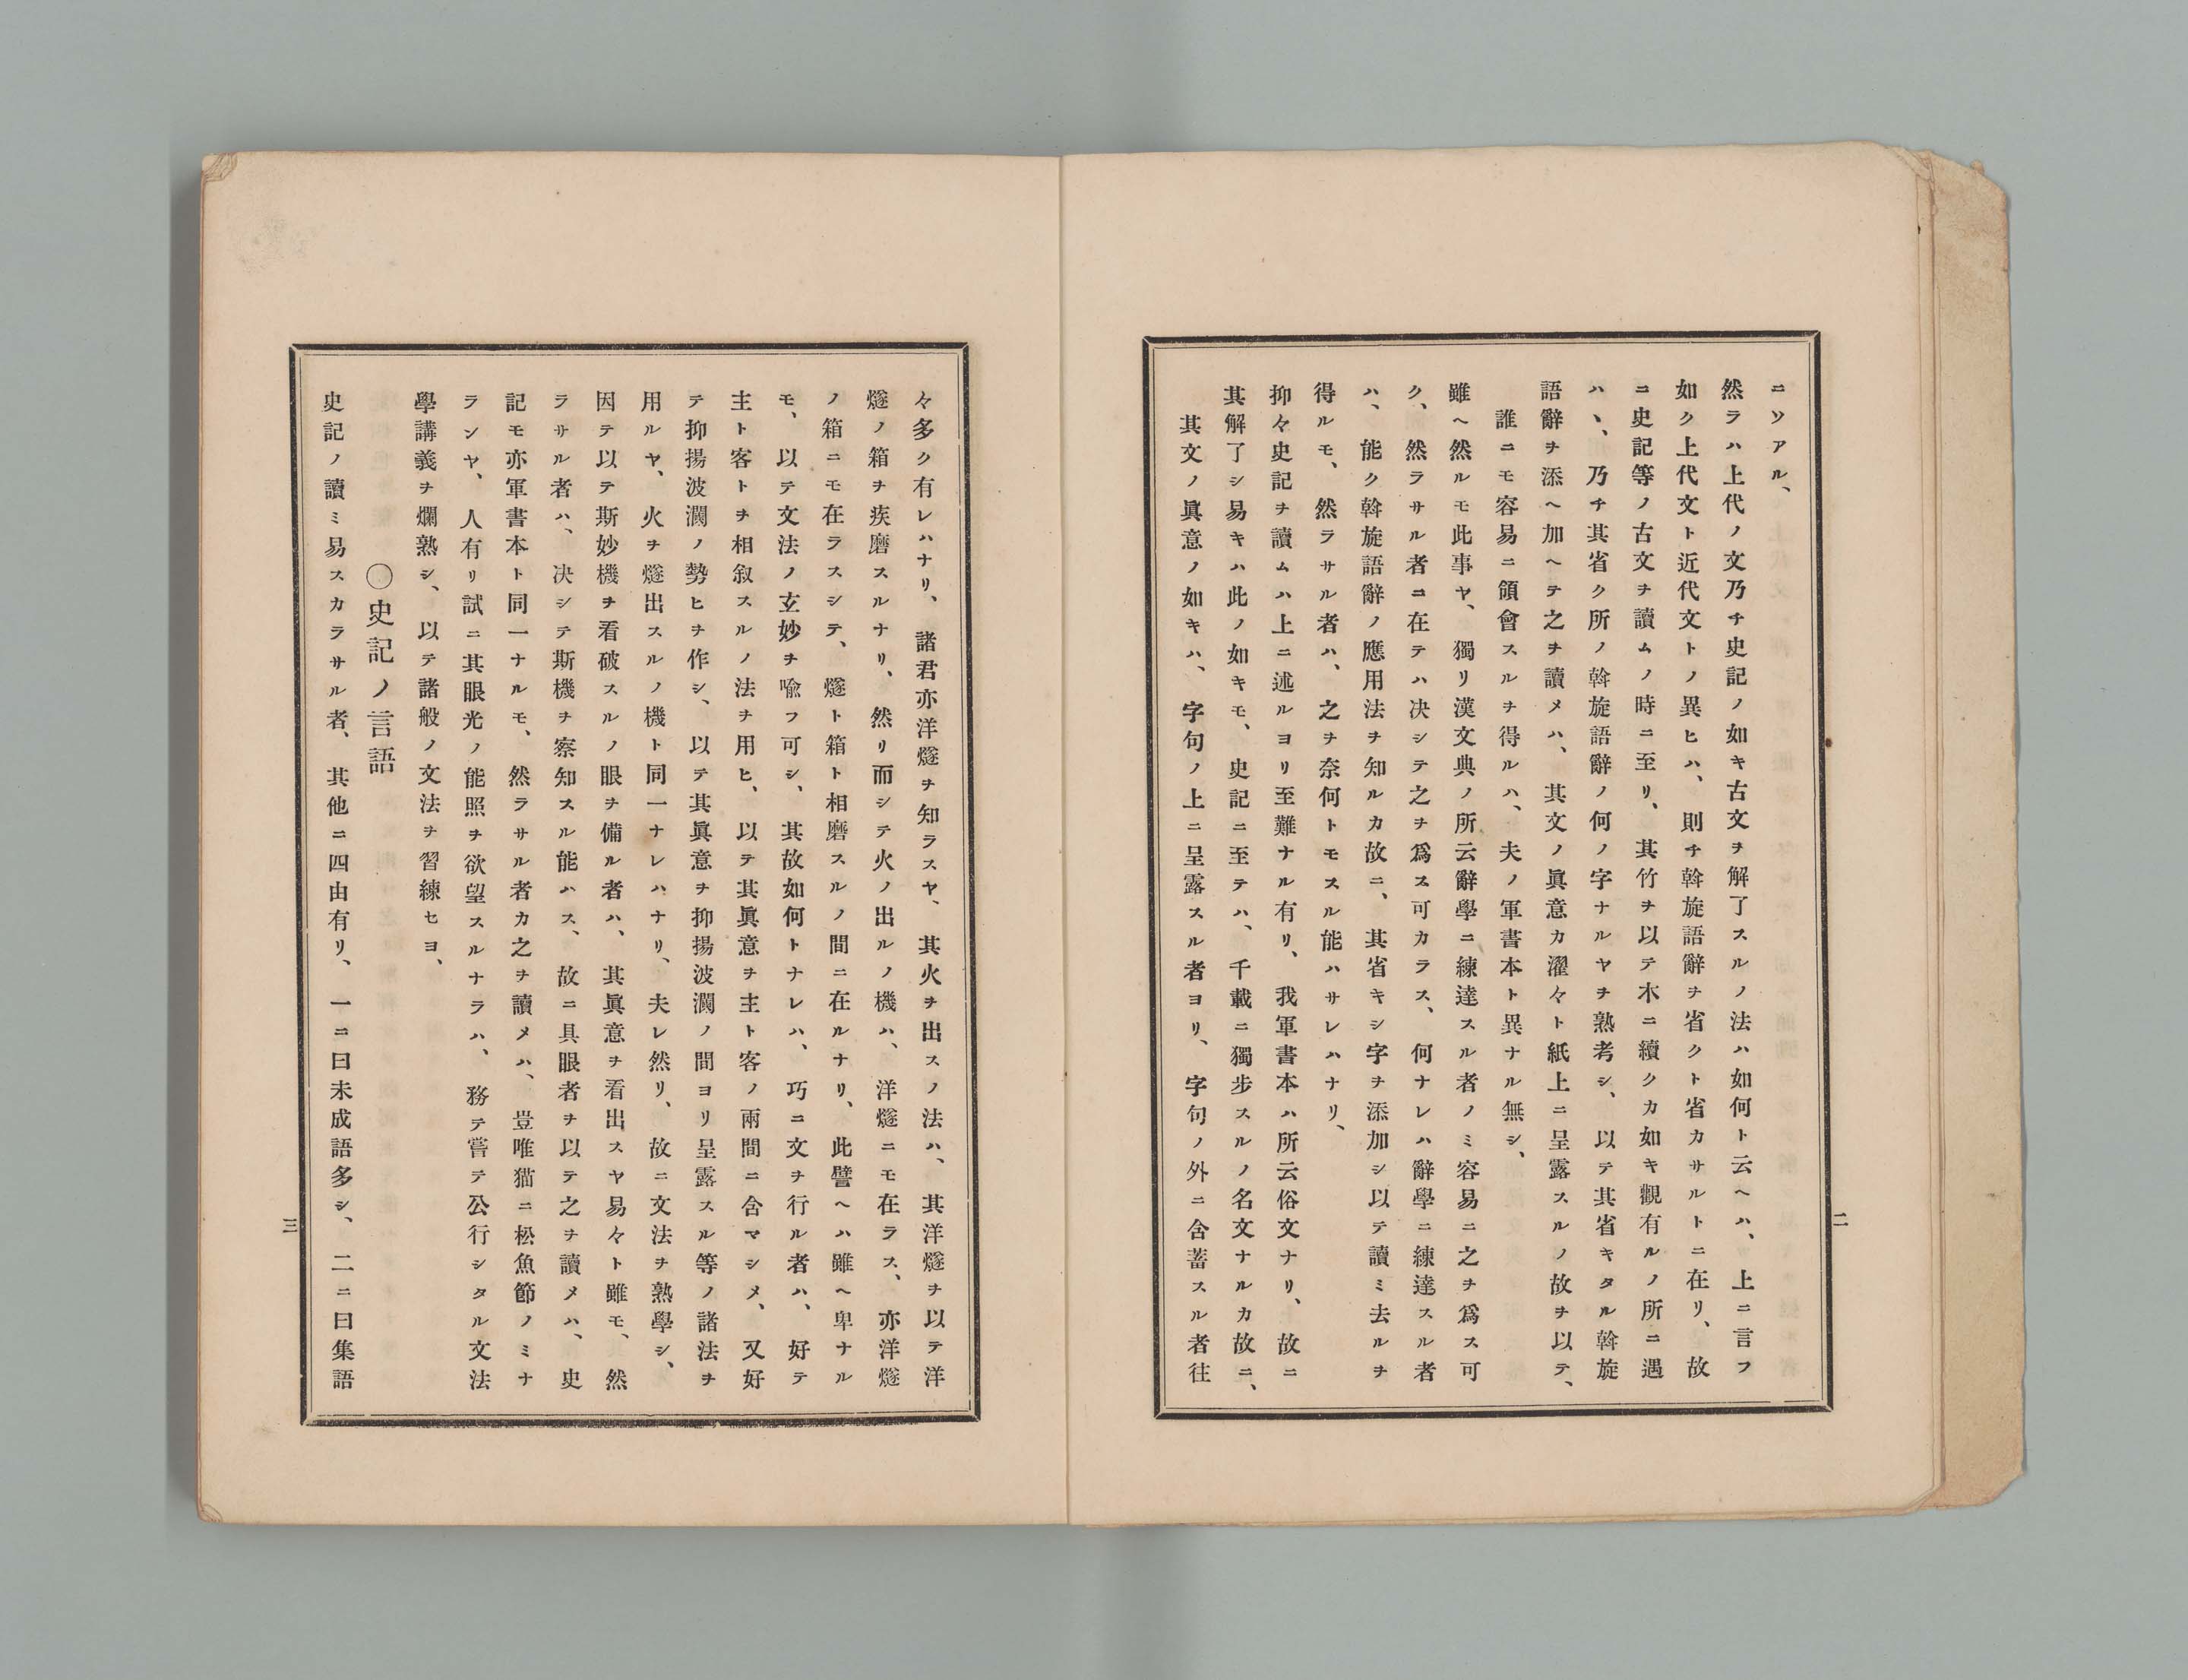 ニソアル、
然ラハ上代ノ文乃チ史記ノ如キ古文ヲ解了スルノ法ハ如何ト云ヘハ、上ニ言フ
如ク上代文ト近代文トノ異ヒハ、則チ斡旋語辭ヲ省クト省カサルトニ在リ、故
ニ史記等ノ古文ヲ讀ムノ時ニ至リ、其竹ヲ以テ木ニ續クカ如キ觀有ルノ所ニ遇
ハヽ、乃チ其省ク所ノ斡旋語辭ノ何ノ字ナルヤヲ熟考シ、以テ其省キタル斡旋
語辭ヲ添ヘ加ヘテ之ヲ讀メハ、其文ノ眞意カ濯々ト紙上ニ呈露スルノ故ヲ以テ、
誰ニモ容易ニ領會スルヲ得ルハ、夫ノ軍書本ト異ナル無シ、
雖ヘ然ルモ此事ヤ、獨リ漢文典ノ所云辭學ニ練達スル者ノミ容易ニ之ヲ爲ス可
ク、然ラサル者ニ在テハ决シテ之ヲ爲ス可カラス、何ナレハ辭學ニ練達スル者
ハ、能ク斡旋語辭ノ應用法ヲ知ルカ故ニ、其省キシ字ヲ添加シ以テ讀ミ去ルヲ
得ルモ、然ラサル者ハ、之ヲ奈何トモスル能ハサレハナリ、
抑々史記ヲ讀ムハ上ニ述ルヨリ至難ナル有リ、我軍書本ハ所云俗文ナリ、故ニ
其解了シ易キハ此ノ如キモ、史記ニ至テハ、千載ニ獨步スルノ名文ナルカ故ニ、
其文ノ眞意ノ如キハ、字句ノ上ニ呈露スル者ヨリ、字句ノ外ニ含蓄スル者往
二
々多ク有レハナリ、諸君亦洋燧ヲ知ラスヤ、其火ヲ出スノ法ハ、其洋燧ヲ以テ洋
燧ノ箱ヲ疾磨スルナリ、然リ而シテ火ノ出ルノ機ハ、洋燧ニモ在ラス、亦洋燧
ノ箱ニモ在ラスシテ、燧ト箱ト相磨スルノ間ニ在ルナリ、此譬ヘハ雖ヘ卑ナル
モ、以テ文法ノ玄妙ヲ喩フ可シ、其故如何トナレハ、巧ニ文ヲ行ル者ハ、好テ
主ト客トヲ相敍スルノ法ヲ用ヒ、以テ其眞意ヲ主ト客ノ兩間ニ含マシメ、又好
テ抑揚波瀾ノ勢ヒヲ作シ、以テ其眞意ヲ抑揚波瀾ノ間ヨリ呈露スル等ノ諸法ヲ
用ルヤ、火ヲ燧出スルノ機ト同一ナレハナリ、夫レ然リ、故ニ文法ヲ熟學シ、
因テ以テ斯妙機ヲ看破スルノ眼ヲ備ル者ハ、其眞意ヲ看出スヤ易々ト雖モ、然
ラサル者ハ、决シテ斯機ヲ察知スル能ハス、故ニ具眼者ヲ以テ之ヲ讀メハ、史
記モ亦軍書本ト同一ナルモ、然ラサル者カ之ヲ讀メハ、豈唯猫ニ松魚節ノミナ
ランヤ、人有リ試ニ其眼光ノ能照ヲ欲望スルナラハ、務テ嘗テ公行シタル文法
學講義ヲ爛熟シ、以テ諸般ノ文法ヲ習練セヨ、
〇史記ノ言語
史記ノ讀ミ易スカラサル者、其他ニ四由有リ、一ニ曰未成語多シ、二ニ曰集語
三